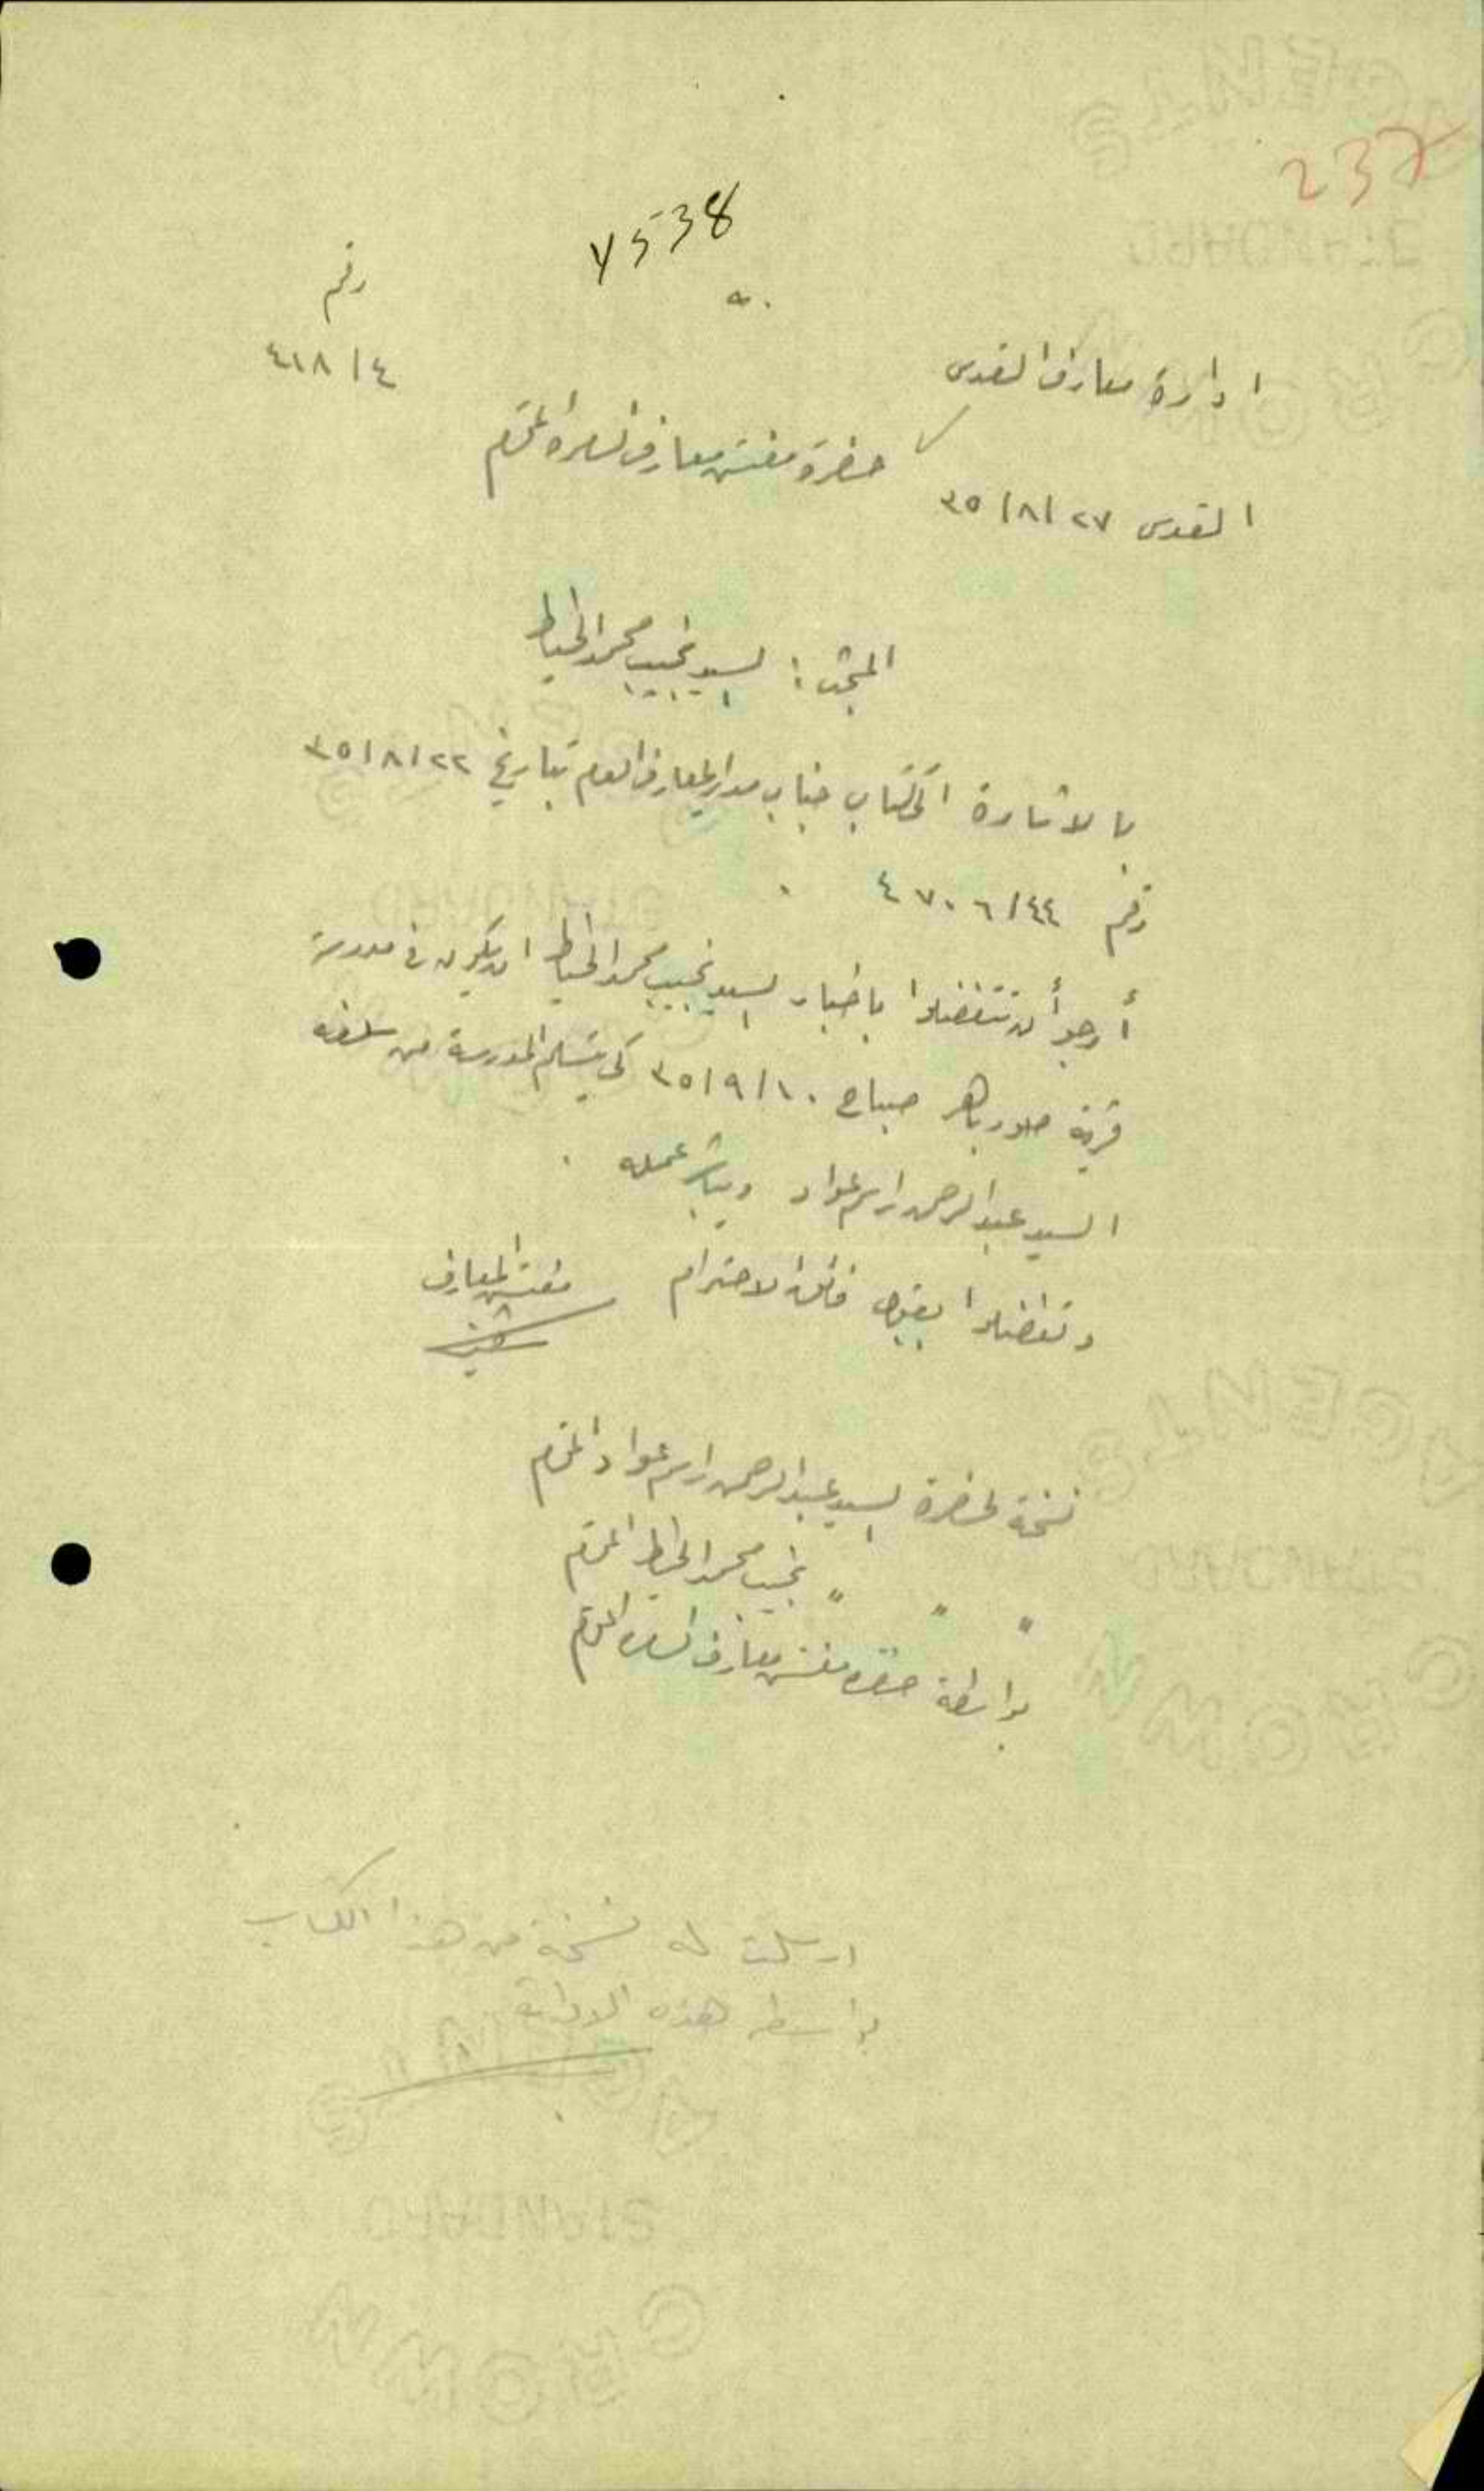 237
4538
رقم
٤١٨/٤
ادارة معارف القدس
حضرة مفتش معارف الناصرة المحترم
القدس ٢٧/٨/٣٥
المبحث : السيد نجيب محمد الخياط
بالاشارة الى كتاب جناب مدير المعارف العام بتاريخ ٢٢/٨/٣٥
رقم ٤٧٠٦/٤٤ .
أرجو أن تتفضلوا باخبار السيد نجيب محمد الخياط ان يكون في مدرسة
قرية صور باهر صباح ١٠/٩/٣٥ كي يتسلم المدرسة من سلفه
السيد عبد الرحمن راسم عواد ويباشر عمله .
وتفضلوا بقبول فائق الاحترام
مفتش المعارف
نسخة لحضرة السيد عبد الرحمن راسم عواد المحترم
" " " نجيب محمد الخياط المحترم
بواسطة حضرة مفتش معارف الناصرة المحترم
ارسلت له نسخة من هذا الكتاب
بواسطة هذه الادارة
AGENTS
STANDARD
CROWN